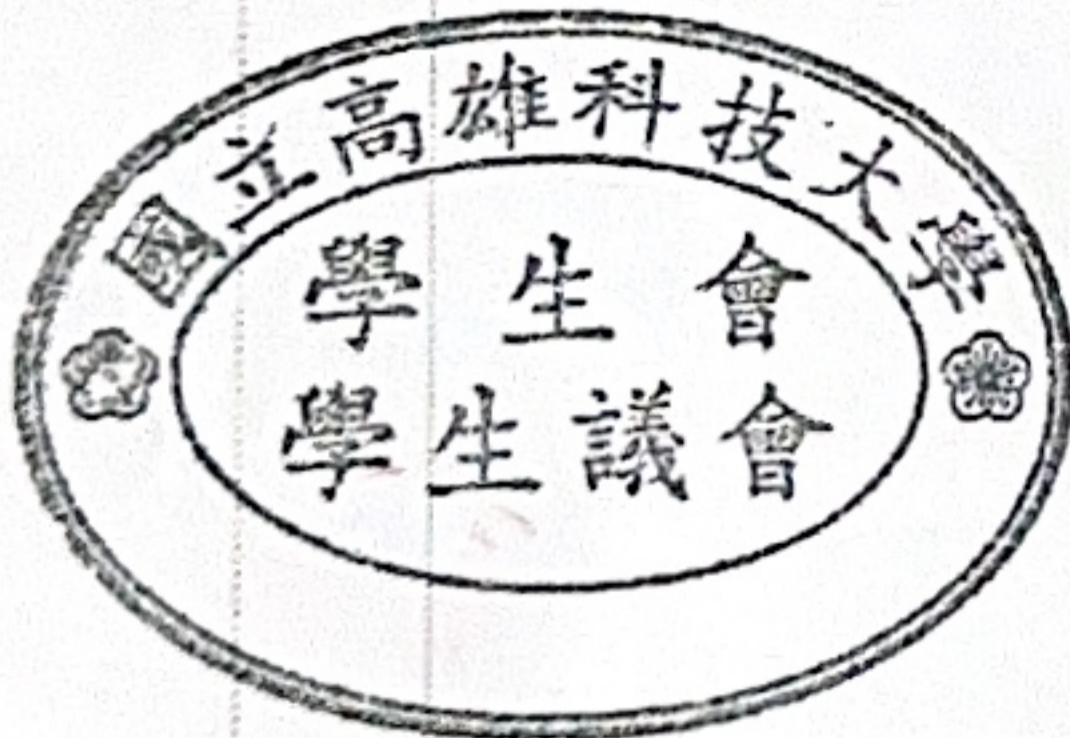 國立高雄科技大學
學生會
學生議會